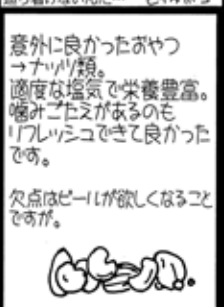 意外に良かったおやつ
→ナッツ類。
適度な塩気で栄養豊富。
噛みごたえがあるのも
リフレッシュできて良かった
です。
欠点はビールが欲しくなること
ですが。